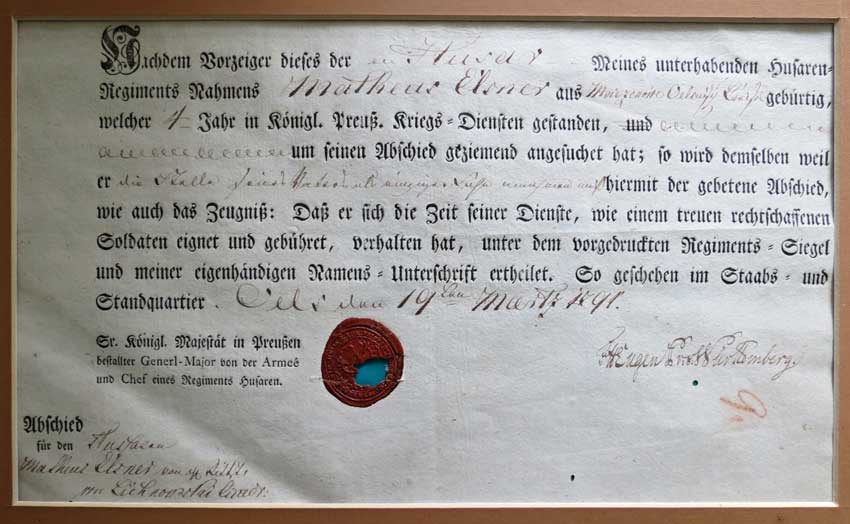 Nachdem Vorzeiger dieses der Husar Meines unterhabenden Husaren-
Regiments Nahmens Matheus Elsner aus gebürtig,
welcher 4 Jahr in Königl. Preuß. Kriegs-Diensten gestanden, und
um seinen Abschied geziemend angesuchet hat; so wird demselben weil
er die Stelle hiermit der gebetene Abschied,
wie auch das Zeugniß: Daß er sich die Zeit seiner Dienste, wie einem treuen rechtschaffenen
Soldaten eignet und gebühret, verhalten hat, unter dem vorgedruckten Regiments-Siegel
und meiner eigenhändigen Namens-Unterschrift ertheilet. So geschehen im Staabs- und
Standquartier. Oels den 19ten Martz
Sr. Königl. Majestät in Preußen
bestallter Generl-Major von der Armeê
und Chef eines Regiments Husaren.
Abschied
für den Husaren
Matheus Elsner von